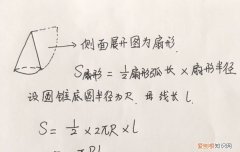 侧面展开图为扇形.
S扇形 = 1/2 扇形弧长 × 扇形半径
设圆锥底圆半径为R. 母线长 l.
S = 1/2 × 2πR × l
= πRl